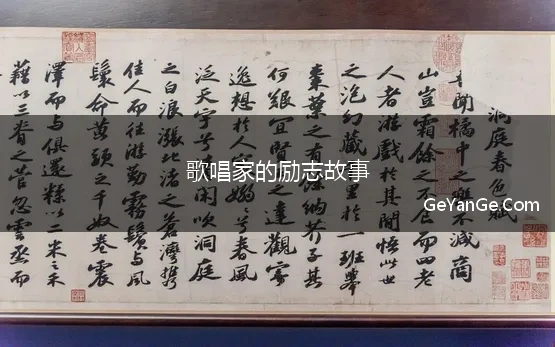 洞庭春色賦
聞橘中之樂不減商
山豈霜餘之不食而四老
人者游戲於其間悟此世
之泡幻藏里於一班舉
棗葉之有餘納芥子其
何艱宜賢之達觀寄
逸想於人嫋兮春風
泛天宇兮閑吹洞庭
之白浪漲北渚之蒼灣攜
佳人而往游勤霧鬢與風
鬟命黃頭之千奴卷震
澤而與俱還糅以二米之禾
藉以三脊之菅忽雲烝而
歌唱家的励志故事
GeYanGe.Com